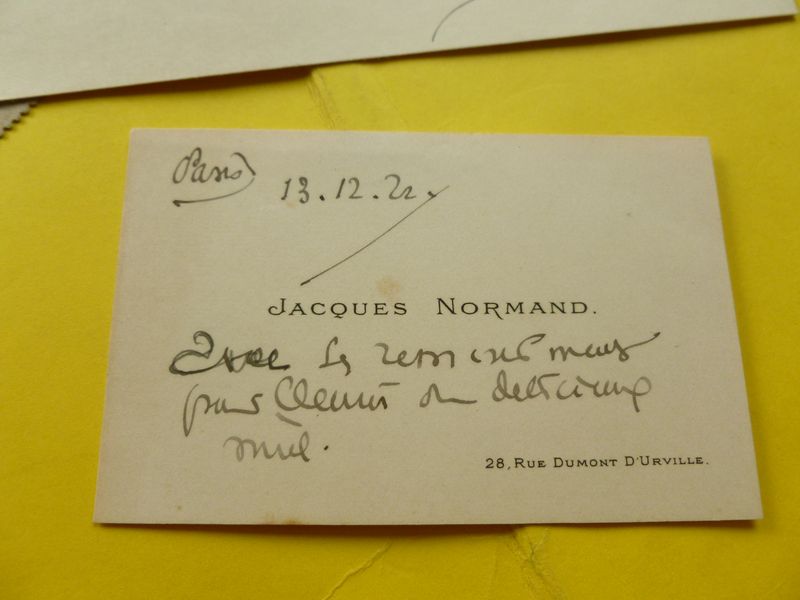 Paris 13.12.22.
JACQUES NORMAND.
Avec ses remerciements
pour l'envoi du délicieux
miel.
28, RUE DUMONT D'URVILLE.